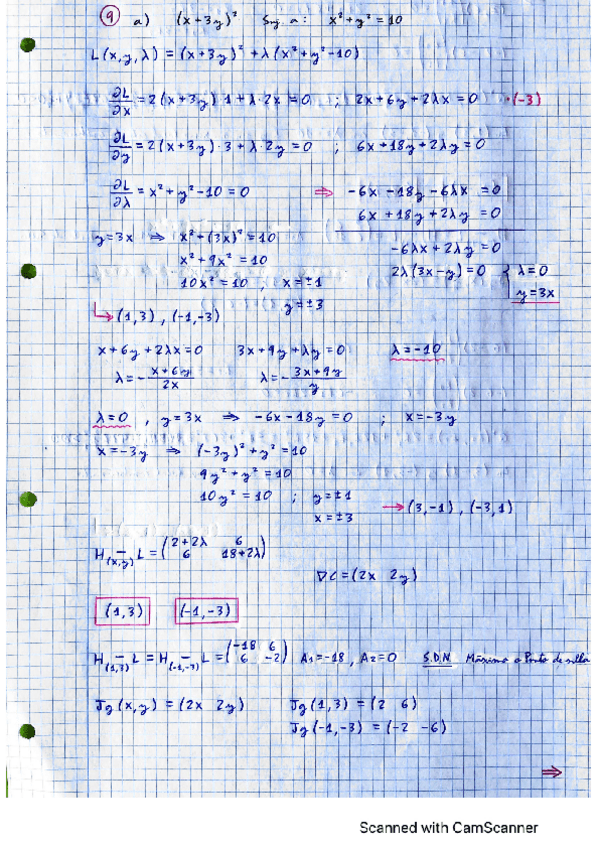 9 a) (x+3y)² Suj. a: x²+y²=10
L(x,y,λ) = (x+3y)² + λ(x²+y²-10)
∂L/∂x = 2(x+3y)·1+λ·2x = 0 ; 2x+6y+2λx = 0 ·(-3)
∂L/∂y = 2(x+3y)·3+λ·2y = 0 ; 6x+18y+2λy = 0
∂L/∂λ = x²+y²-10 = 0 ⇒ -6x-18y-6λx = 0
6x+18y+2λy = 0
y=3x ⇒ x²+(3x)²=10
-6λx+2λy = 0
x²+9x²=10
2λ(3x-y)=0 λ=0
10x²=10 ; x=±1
y=3x
y=±3
↳ (1,3), (-1,-3)
x+6y+2λx=0 3x+9y+λy=0 λ=-10
λ=-(x+6y)/2x λ=-(3x+9y)/y
λ=0, y=3x ⇒ -6x-18y=0 ; x=-3y
x=-3y ⇒ (-3y)²+y²=10
9y²+y²=10
10y²=10 ; y=±1
x=±3 → (3,-1), (-3,1)
H(x,y)L = (2+2λ 6
6 18+2λ)
∇C=(2x 2y)
(1,3) (-1,-3)
H(1,3)L = H(-1,-3)L = (-18 6
6 -2) A₁=-18, A₂=0 S.D.N. Máximo o Punto de silla
Jg(x,y) = (2x 2y) Jg(1,3) = (2 6)
Jg(-1,-3) = (-2 -6)
⇒
Scanned with CamScanner